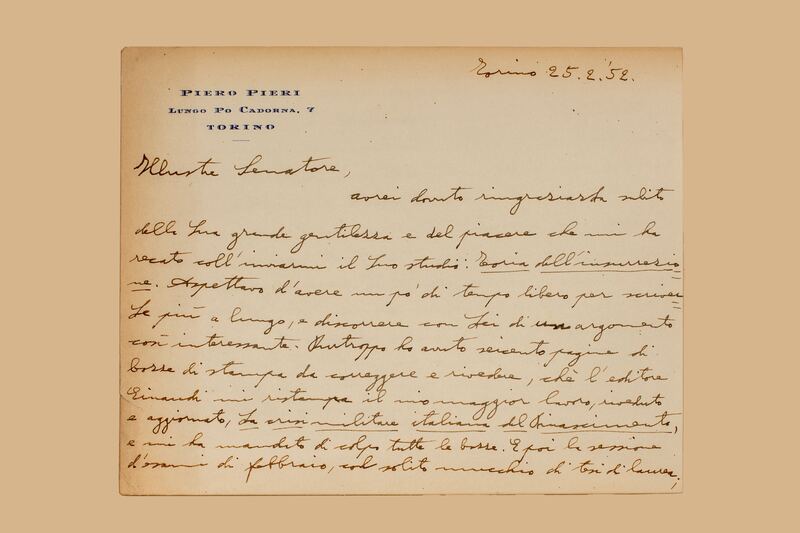 Torino 25.2.'52.
PIERO PIERI
LUNGO PO CADORNA, 7
TORINO
Illustre Senatore,
avrei dovuto ringraziarLa subito
della Sua grande gentilezza e del piacere che mi ha
recato coll'inviarmi il Suo studio: Teoria dell'insurrezio=
ne. Aspettavo d'avere un po' di tempo libero per scriver=
Le più a lungo, e discorrere con Lei di un argomento
così interessante. Purtroppo ho avuto seicento pagine di
bozze di stampa da correggere e rivedere, chè l'editore
Einaudi mi ristampa il mio maggior lavoro, riveduto
e aggiornato, La crisi militare italiana del Rinascimento,
e mi ha mandato di colpo tutte le bozze. E poi la sessione
d'esami di febbraio, col solito mucchio di tesi di laurea;